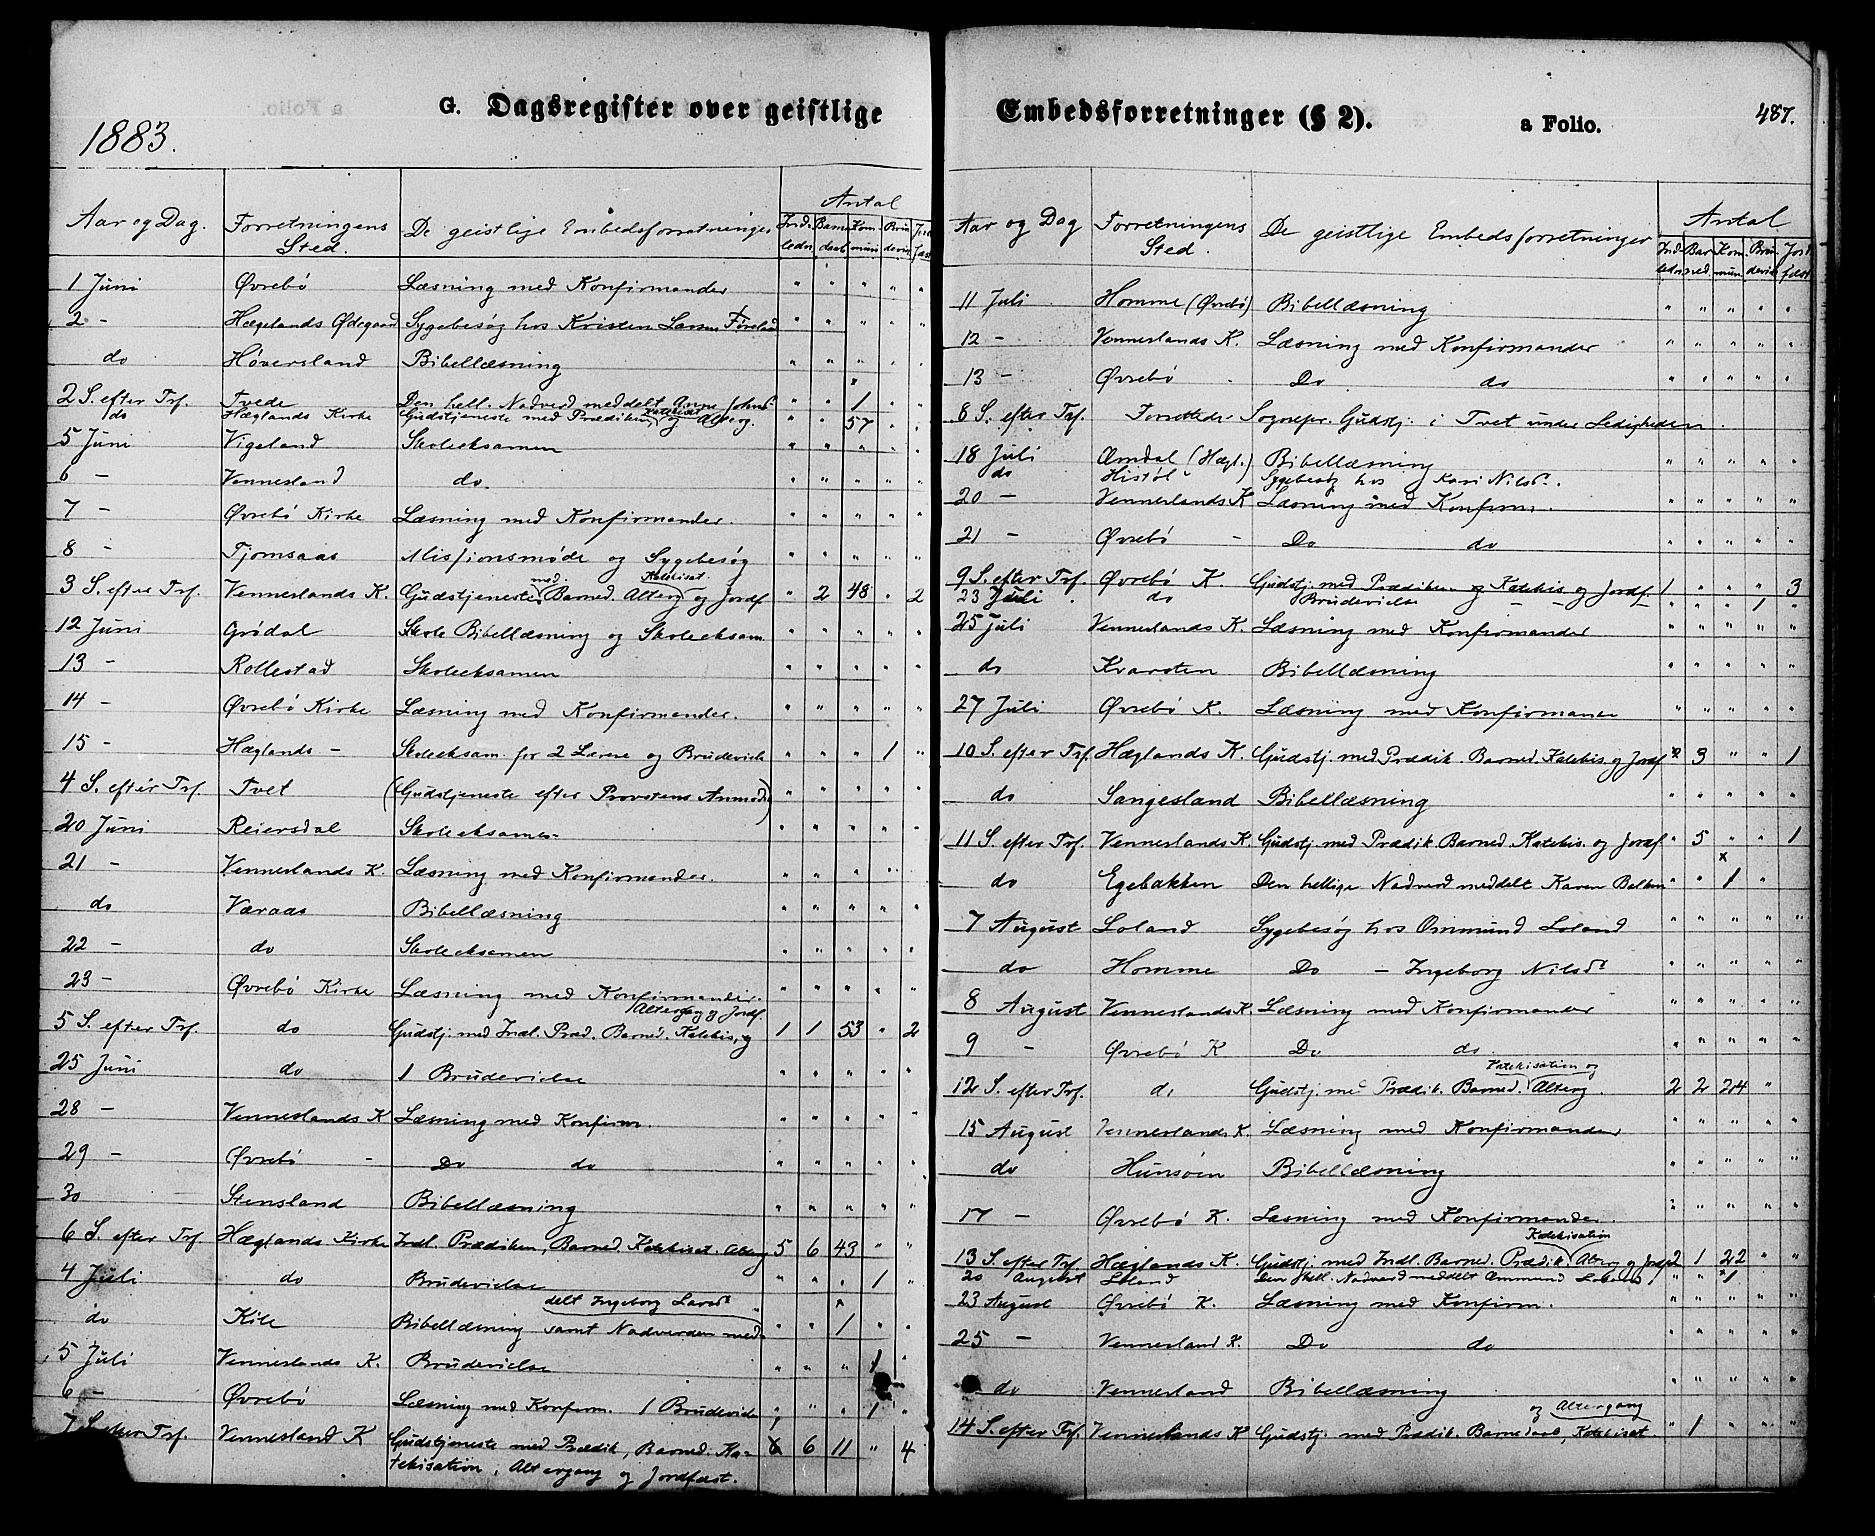 G. Dagsregister over geistlige
1883.
Antal
Aar og Dag. Forretningens Sted. De geistlige Embedsforretninger Indledn. Barnedaab Kommun Brudevie Jordfast
1 Juni Øvrebø Læsning med Konfirmander " " " " "
2 - Hægelands Ødegaard Sygebesøg hos Kristen Larsen " " " " "
do Høversland Bibellæsning " " " " "
2 S. efter Trf. Tvede Den hell. Nadverd meddelt Anne Johns " " 1 " "
do Hæglands Kirke Gudstjeneste med Prædiken, Katekisat og Alterg. " " 57 " "
5 Juni Vigeland Skoleeksamen " " " " "
6 - Vennesland do. " " " " "
7 - Øvrebø Kirke Læsning med Konfirmander. " " " " "
8 - Tjomsaas Missionsmøde og Sygebesøg " " " " "
3 S. efter Trf. Venneslands K. Gudstjeneste med Katekisat. Barned. Alterg og Jordf " 2 48 " 2
12 Juni Grødal Bibellæsning og Skoleeksam " " " " "
13 - Rollestad Skoleeksamen " " " " "
14 - Øvrebø Kirke Læsning med Konfirmander. " " " " "
15 - Hæglands - Skoleeksam. for 2 Lærere og Brudevielse " " " 1 "
4 S. efter Trf. Tvet (Gudstjeneste efter Provstens Anmodn) " " " " "
20 Juni Reiersdal Skoleeksamen " " " " "
21 - Venneslands K. Læsning med Konfirmander. " " " " "
do Væraas Bibellæsning " " " " "
22 - do Skoleeksamen " " " " "
23 - Øvrebø Kirke Læsning med Konfirmander. " " " " "
5 S. efter Trf. do Gudstj. med Indl. Præd. Barned. Katekis, og Altergang og Jordf. 1 1 53 " 2
25 Juni do 1 Brudevielse " " " " "
28 - Venneslands K Læsning med Konfirm. " " " " "
29 - Øvrebø - Do do " " " " "
30 Stensland Bibellæsning " " " " "
6 S. efter Trf. Hæglands Kirke Indl. Prædiken, Barned. Katekisat. Alterg 5 6 43 " "
4 Juli do Brudevielse " " " 1 "
do Kile Bibellæsning samt Nadverden meddelt Ingeborg Larsd " " 1 " "
5 Juli Venneslands K. Brudevielse " " " 1 "
6 - Øvrebø Læsning med Konfirm. 1 Brudevielse " " " 1 "
7 S. efter Trf. Vennesland K Gudstjeneste med Prædik, Barned. Ka- 6 11 " 4
tekisation, Altergang og Jordfæst.
Embedsforretninger (§ 2). a Folio. 487.
Antal
Aar og Dag Forretningens Sted. De geistlige Embedsforretninger Indledn Barned. Kommun. Brudevie Jordfæst
11 Juli Homme (Øvrebø) Bibellæsning " " " " "
12 - Venneslands K. Læsning med Konfirmander " " " " "
13 - Øvrebø - Do do " " " " "
8 S. efter Trf. Forrettede Sognepr. Gudstj. i Tvet under Ledigheden.
18 Juli Omdal (Hægl.) Bibellæsning " " " " "
do Histøl Sygebesøg hos Kari Nilsd.
20 - Venneslands K Læsning med Konfirm. " " " " "
21 - Øvrebø - Do do " " " " "
9 S. efter Trf. Øvrebø K. Gudstj. med Prædiken og Katekis. og Jordf. 1 " " " 3
23 Juli do Brudevielse " " " 1 "
25 Juli Venneslands K. Læsning med Konfirmander " " " " "
do Kvarsten Bibellæsning " " " " "
27 Juli Øvrebø K. Læsning med Konfirmaner " " " " "
10 S. efter Trf. Hæglands K. Gudstj. med Prædik. Barned. Katekis. og Jordf " 3 " " 1
do Sangesland Bibellæsning " " " " "
11 S. efter Trf. Venneslands K Gudstj. med Prædik. Barned. Katekis. og Jordf " 5 " " 1
do Egebakken Den hellige Nadverd meddelt Karen " " x 1 "
7 August Loland Sygebesøg hos Ommund Loland " " " " "
do Homme Do - Ingeborg Nilsd " " " " "
8 August Venneslands K. Læsning med Konfirmander " " " " "
9 - Øvrebø K Do do " " " " "
12 S. efter Trf. do Gudstj. med Prædik. Barned. Katekisation og Alterg. 2 2 24 "
15 August Venneslands K. Læsning med Konfirmander " " " " "
do Hunsøen Bibellæsning " " " " "
17 - Øvrebø K. Læsning med Konfirmander. " " " " "
13 S. efter Trf. Hæglands K. Gudstj. med Indl. Barned. Prædik. Katekisation Alterg og Jordf 2 1 22 " "
20 August Loland Den Hell. Nadverd meddelt Ommund Loland " " 1 " "
23 August Øvrebø K. Læsning med Konfirm. " " " " "
25 - Vennesland K. Do do " " " " "
do Vennesland Bibellæsning " " " " "
14 S. efter Trf. Venneslands K Gudstj. med Prædik. Barnedaab, Katekisat. og Altergang " 1 " " "